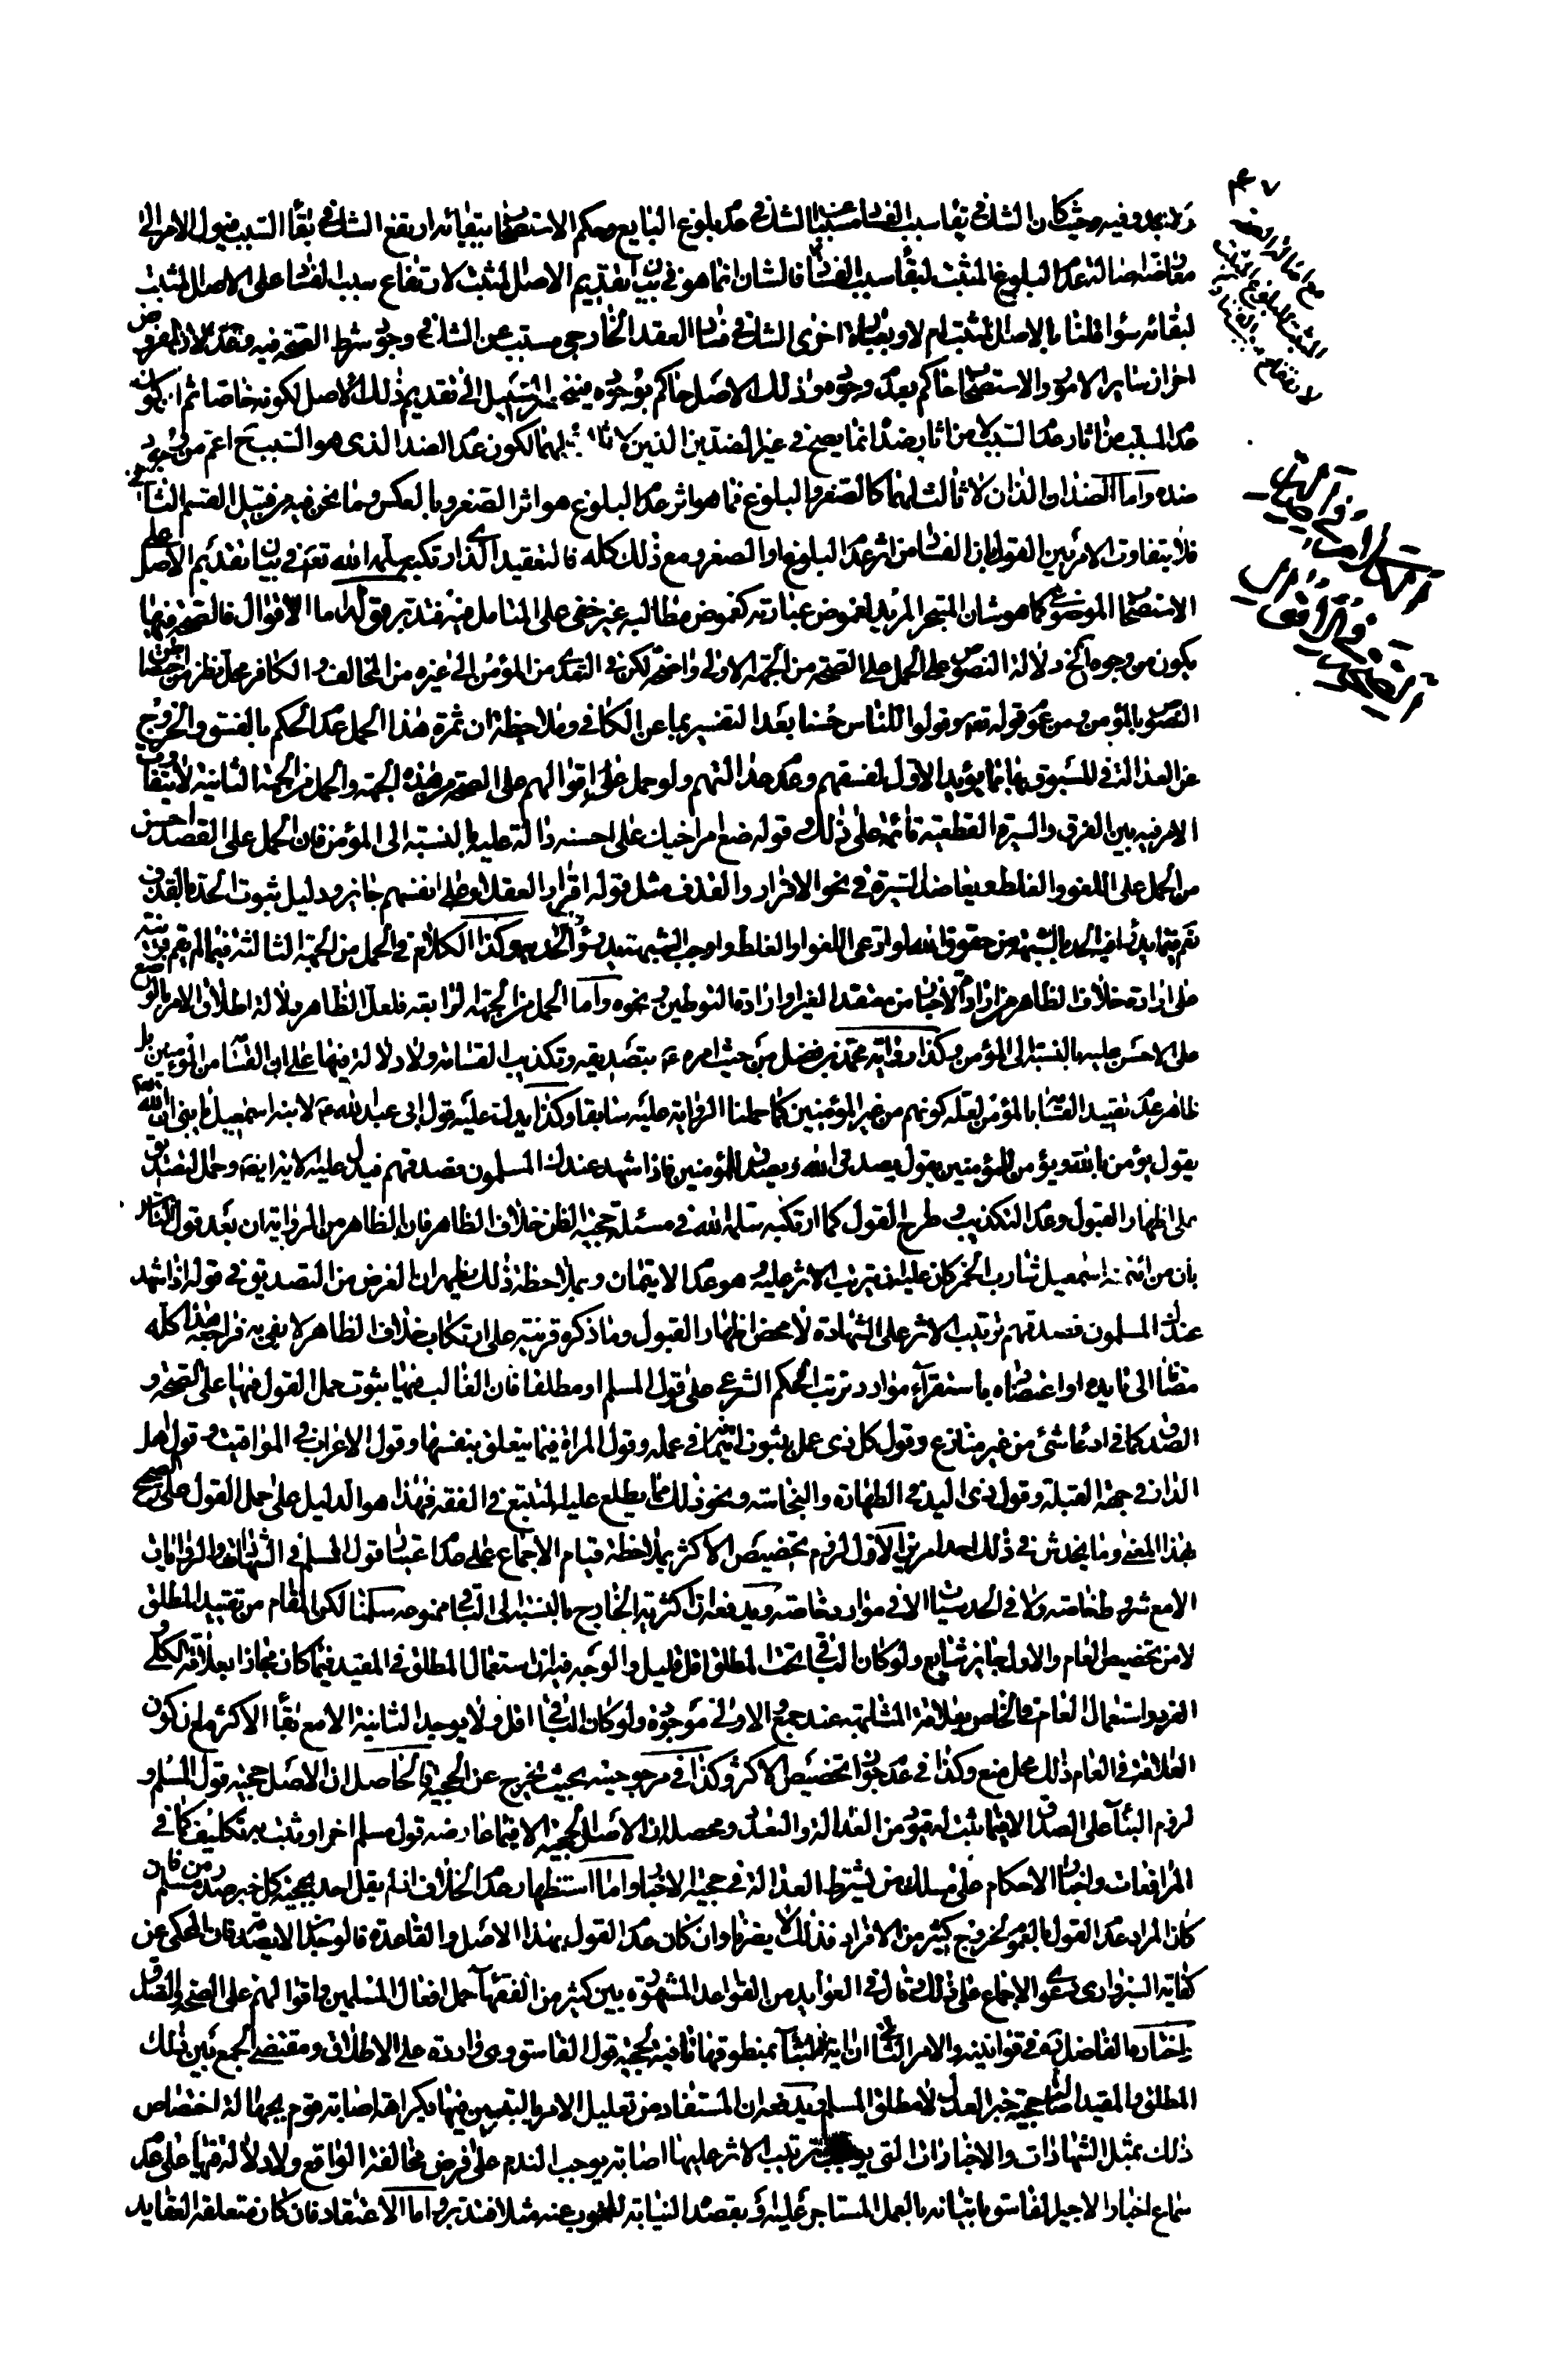 ولا يجد وفيه وحيث كان الشك في بقاء سبب الفساد مسببا عن الشك في عدم بلوغ البايع وحكم الاستصحاب ببقائه ارتفع الشك في بقاء السبب فيول الامر الى
معارضة اصالة عدم البلوغ المثبت لبقاء سبب الفساد فالشان انما هو في بيان تقديم الاصل المثبت لارتفاع سبب الفساد على الاصل المثبت
لبقائه سواء قلنا بالاصل المثبت ام لا وبعبارة اخرى الشك في فساد العقد الخارجي مسبب عن الشك في وجود شرط الصحة فيه
احراز ساير الامور والاستصحاب حاكم بعدم وجوده وذلك الاصل حاكم بوجوده السبيل الى تقديم ذلك الاصل لكونه خاصا ثم ان كون
عدم المسبب من اثار عدم السبب لا من اثار ضده انما يصح في غير الضدين الذين لا ثالث لهما لكون عدم الضد الذي هو السبب ح اعم من وجود
ضده واما الضدان الذان لا ثالث لهما كالصغر والبلوغ فما هو اثر عدم البلوغ هو اثر الصغر وبالعكس وما نحن فيه من قبيل القسم الثاني
فلا يتفاوت الامر بين القول بان الفساد من اثر عدم البلوغ او الصغر ومع ذلك كله فالتعقيد الذي ارتكبه سلمه الله تعالى في بيان تقديم الاصل على
الاستصحاب الموضوعي كما هو شان المتبحر المريد لغموض عبارته كغموض مطالبه غير خفي على المتامل فيه فتدبر قوله واما الاقوال فالصحة فيها
يكون من وجوه الخ دلالة النصوص على الحمل على الصحة من الجهة الاولى واضحة لكن في التعدي من المؤمن الى غيره من المخالف والكافر محل نظر من اختصاص
النصوص بالمؤمن ومن عموم قوله تعالى وقولوا للناس حسنا بعد التفسير بما عن الكافي وملاحظة ان ثمرة هذا الحمل عدم الحكم بالفسق والخروج
عن العدالة في المسبوق بها مما يؤيد الاول لفسقهم وعدم عدالتهم ولو حمل على اقوالهم على الصحة من هذه الجهة والحمل من الجهة الثانية لا يتفاوت
الامر فيه بين الفرق والسيرة القطعية قائمة على ذلك وقوله ضع امر اخيك على احسنه دالة عليه بالنسبة الى المؤمن فان الحمل على القصد احسن
من الحمل على اللغو والغلط ويعاضد السيرة في نحو الاقرار والقذف مثل قوله اقرار العقلاء على انفسهم جايز ودليل ثبوت الحد بالقذف
نعم فيما يدرء فيه الحد بالشبهة من حقوق الله لو ادعى اللغو او الغلط واوجب الشبهة يدرء الحد به وكذا الكلام في الحمل من الجهة الثالثة فيما لم يقم قرينة
على ارادة خلاف الظاهر من ارادة الاخبار من معتقد الغير او ارادة التوطين ونحوه واما الحمل من الجهة الرابعة فلعل الظاهر دلالة اطلاق الامر بالوضع
على الاحسن عليه بالنسبة الى المؤمن وكذا رواية محمد بن فضل من حيث امره ع بتصديقه وتكذيب القسامة ولا دلالة فيهما على ان القسامة من المؤمنين بل
ظاهر عدم تقييد القسامة بالمؤمن لعله كونهم من غير المؤمنين كما حملنا الرواية عليه سابقا وكذا يدل عليه قول ابي عبد الله ع لابنه اسمعيل يا بني ان الله
يقول يؤمن بالله ويؤمن للمؤمنين يقول يصدق الله ويصدق للمؤمنين فاذا شهد عندك المسلمون فصدقهم فيدل عليه الاية ايضا وحمل التصديق
على اظهار القبول وعدم التكذيب وطرح القول كما ارتكبه سلمه الله في مسئلة حجية الظن خلاف الظاهر فان الظاهر من الرواية ان بعد قول الناس
بان من ائتمنه اسمعيل شارب الخمر كان عليه ان يرتب الاثر عليه وهو عدم الايتمان وبملاحظة ذلك يظهر ان الغرض من التصديق في قوله اذا شهد
عندك المسلمون فصدقهم ترتيب الاثر على الشهادة لا محض اظهار القبول وما ذكره قرينة على ارتكاب خلاف الظاهر لا يفي به فراجعه هذا كله
مضافا الى تاييده او اعتضاده باستقراء موارد ترتب الحكم الشرعي على قول المسلم او مطلقا فان الغالب فيها ثبوت حمل القول فيها على الصحة و
الصدق كما في ادعاء شئ من غير منازع وقول كل ذي عمل بثبوت ايتمانه في عمله وقول المراة فيما يتعلق بنفسها وقول الاعراب في المواقيت وقول اهل
الذان في جهة القبلة وقول ذي اليد في الطهارة والنجاسة ونحو ذلك مما يطلع عليه المتتبع في الفقه فهذا هو الدليل على حمل القول على الصحيح
بهذا المعنى وما يخدش في ذلك احد امرين الاول لزوم تخصيص الاكثر بملاحظة قيام الاجماع على عدم اعتبار قول المسلم في الشهادات والروايات
الا مع شروط خاصة ولا في الحدسيات الا في موارد خاصة ويدفعه ان اكثرية الخارج بالنسبة الى الباقي ممنوعه سلمنا لكن المقام من تقييد المطلق
لا من تخصيص العام والاول جايز شايع ولو كان الباقي تحت المطلق اقل قليل والوجه فيه ان استعمال المطلق في المقيد فيما كان مجازا بعلاقة الكلي و
الفرد واستعمال العام في الخاص بعلاقة المشابهة عند جمع والاولى موجودة ولو كان الباقي اقل ولا يوجد الثانية الا مع بقاء الاكثر مع ان كون
العلاقة في العام ذلك محل منع وكذا في عدم جواز تخصيص الاكثر وكذا في مرجوحيته بحيث يخرج عن الحجية والحاصل ان الاصل حجية قول المسلم و
لزوم البناء على الصدق الا فيما يثبت له قيود من العدالة والتعدد ومحصله ان الاصل الحجية الا فيما عارضه قول مسلم اخر او يثبت به تكليف كما في
المرافعات واخبار الاحكام على مسلك من يشترط العدالة في حجية الاخبار واما استظهار عدم الخلاف انه لم يقل احد بحجية كل خبر صدر من مسلم فان
كان المراد عدم القول بالعموم لخروج كثير من الافراد فذلك لا يضرنا وان كان عدم القول بهذا الاصل والقاعدة فالوجدان لا يصدقه فان المحكي عن
كفاية السبزواري دعوى الاجماع على ذلك وقال في العوايد من القواعد المشهورة بين كثير من الفقهاء حمل افعال المسلمين واقوالهم على الصحة والصدق
واختاره الفاضل القمي في قوانينه والامر الثاني ان اية النبا بمنطوقها نافية لحجية قول الفاسق وهي واردة على الاطلاق ومقتضى الجمع بين ذلك
المطلق والمقيد اصالة حجية خبر العدل لا مطلق المسلم ويدفعه ان المستفاد من تعليل الامر بالتبين فيها بكراهة اصابة قوم بجهالة اختصاص
ذلك بمثل الشهادات والاخبارات التي يوجب ترتيب الاثر عليها اصابة يوجب الندم على فرض مخالفة الواقع ولا دلالة فيها على عدم
سماع اخبار الاجير الفاسق باتيانه بالعمل المستاجر عليه وبقصد النيابة للمنوب عنه مثلا فتدبر واما الاعتقاد فان كان متعلقة العقايد